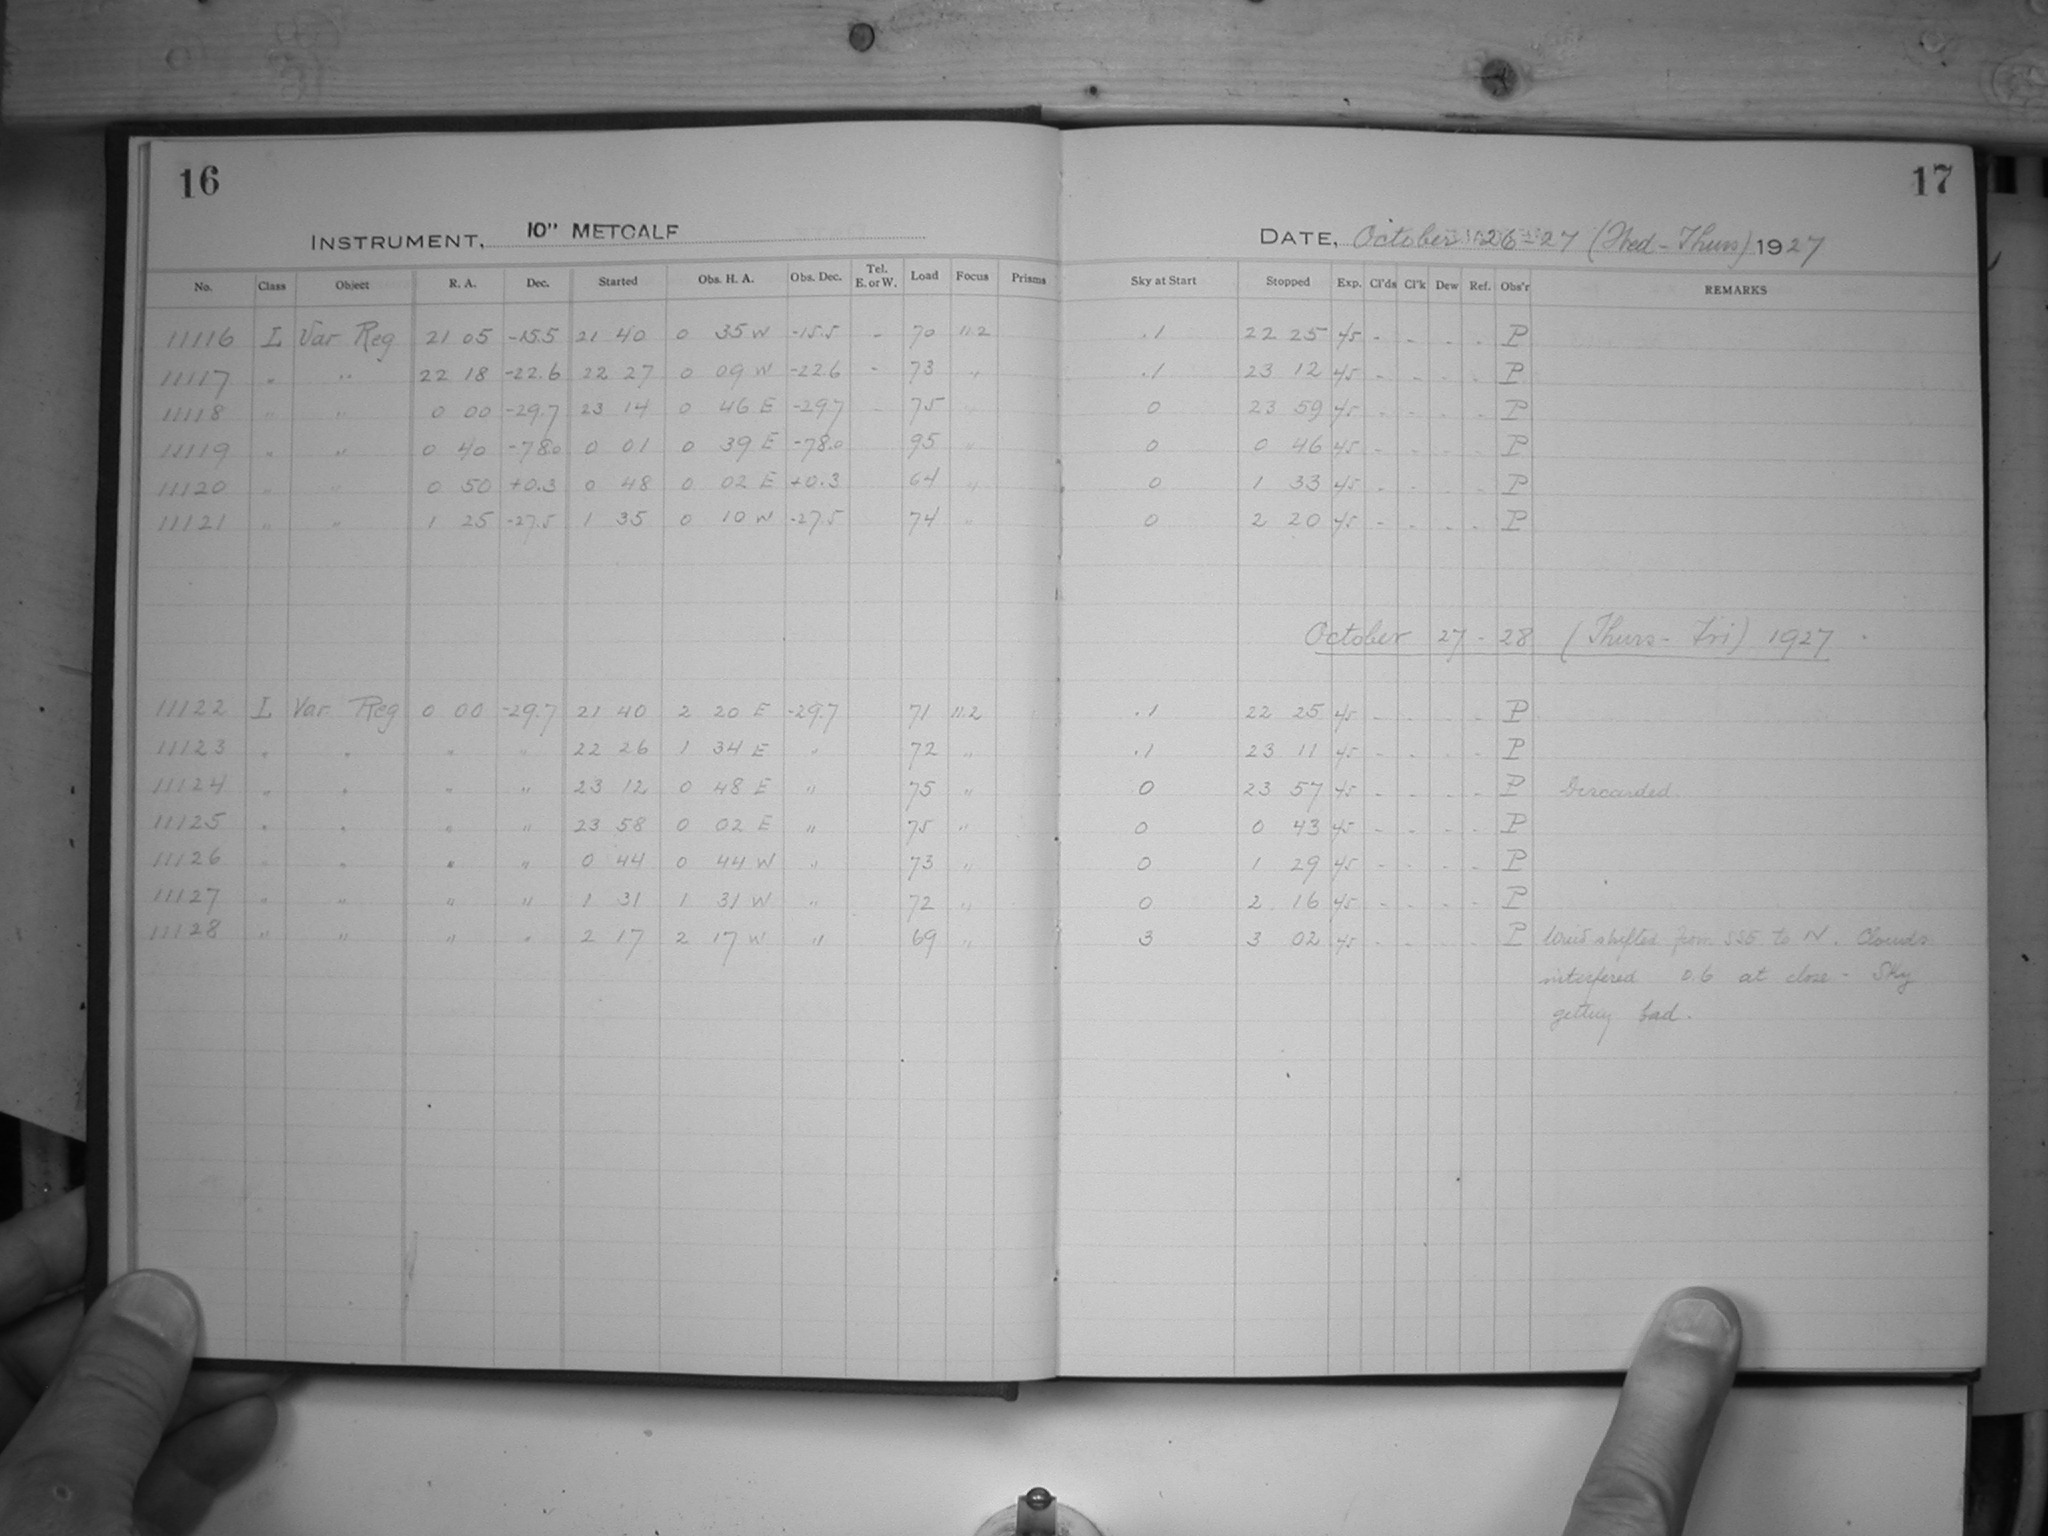 16
17
INSTRUMENT, 10" METCALF
DATE, October 26-27 (Wed-Thurs) 1927
No. Class Object R. A. Dec. Started Obs. H. A. Obs. Dec. Tel. E. or W. Load Focus Prisms Sky at Start Stopped Exp. Cl'ds Cl'k Dew Ref. Obs'r REMARKS
11116 L Var Reg 21 05 -15.5 21 40 0 35 W -15.5 - 70 11.2 .1 22 25 45 - - - - P
11117 " " 22 18 -22.6 22 27 0 09 W -22.6 - 73 " .1 23 12 45 - - - - P
11118 " " 0 00 -29.7 23 14 0 46 E -29.7 - 75 " 0 23 59 45 - - - - P
11119 " " 0 40 -78.0 0 01 0 39 E -78.0 95 " 0 0 46 45 - - - - P
11120 " " 0 50 +0.3 0 48 0 02 E +0.3 64 " 0 1 33 45 - - - - P
11121 " " 1 25 -27.5 1 35 0 10 W -27.5 74 " 0 2 20 45 - - - - P
October 27-28 (Thurs-Fri) 1927
11122 L Var Reg 0 00 -29.7 21 40 2 20 E -29.7 71 11.2 .1 22 25 45 - - - - P
11123 " " " " 22 26 1 34 E " 72 " .1 23 11 45 - - - - P
11124 " " " " 23 12 0 48 E " 75 " 0 23 57 45 - - - - P Discarded
11125 " " " " 23 58 0 02 E " 75 " 0 0 43 45 - - - - P
11126 " " " " 0 44 0 44 W " 73 " 0 1 29 45 - - - - P
11127 " " " " 1 31 1 31 W " 72 " 0 2 16 45 - - - - P
11128 " " " " 2 17 2 17 W " 69 " 3 3 02 45 - - - - P Wind shifted from SSE to N. Clouds
interfered 0.6 at close - Sky
getting bad.